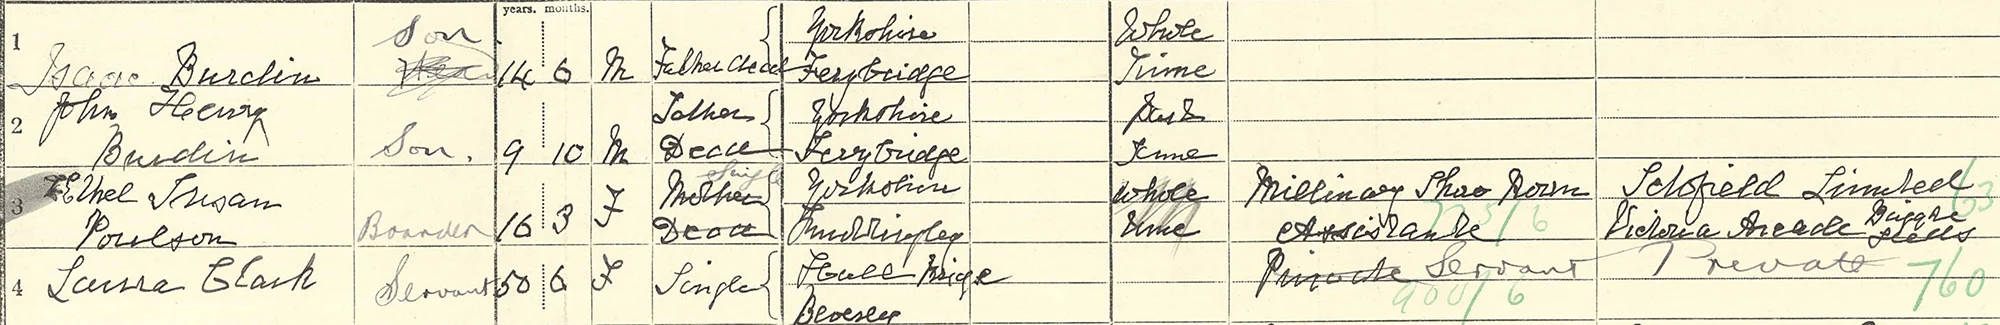 years. months.
1 Isaac Burdin Son 14 6 M Father dead Yorkshire Ferrybridge Whole Time
2 John Henry Burdin Son. 9 10 M Father Dead Yorkshire Ferrybridge Time
3 Ethel Susan Poulson Boarder 16 3 F Single Mother Dead Yorkshire Whole Time Millinary Assistante Schofield Limited Victoria Arcade Leeds
4 Laura Clark Servant 50 6 F Single Hull Bridge Beverley Private Servant Private
900/6 760